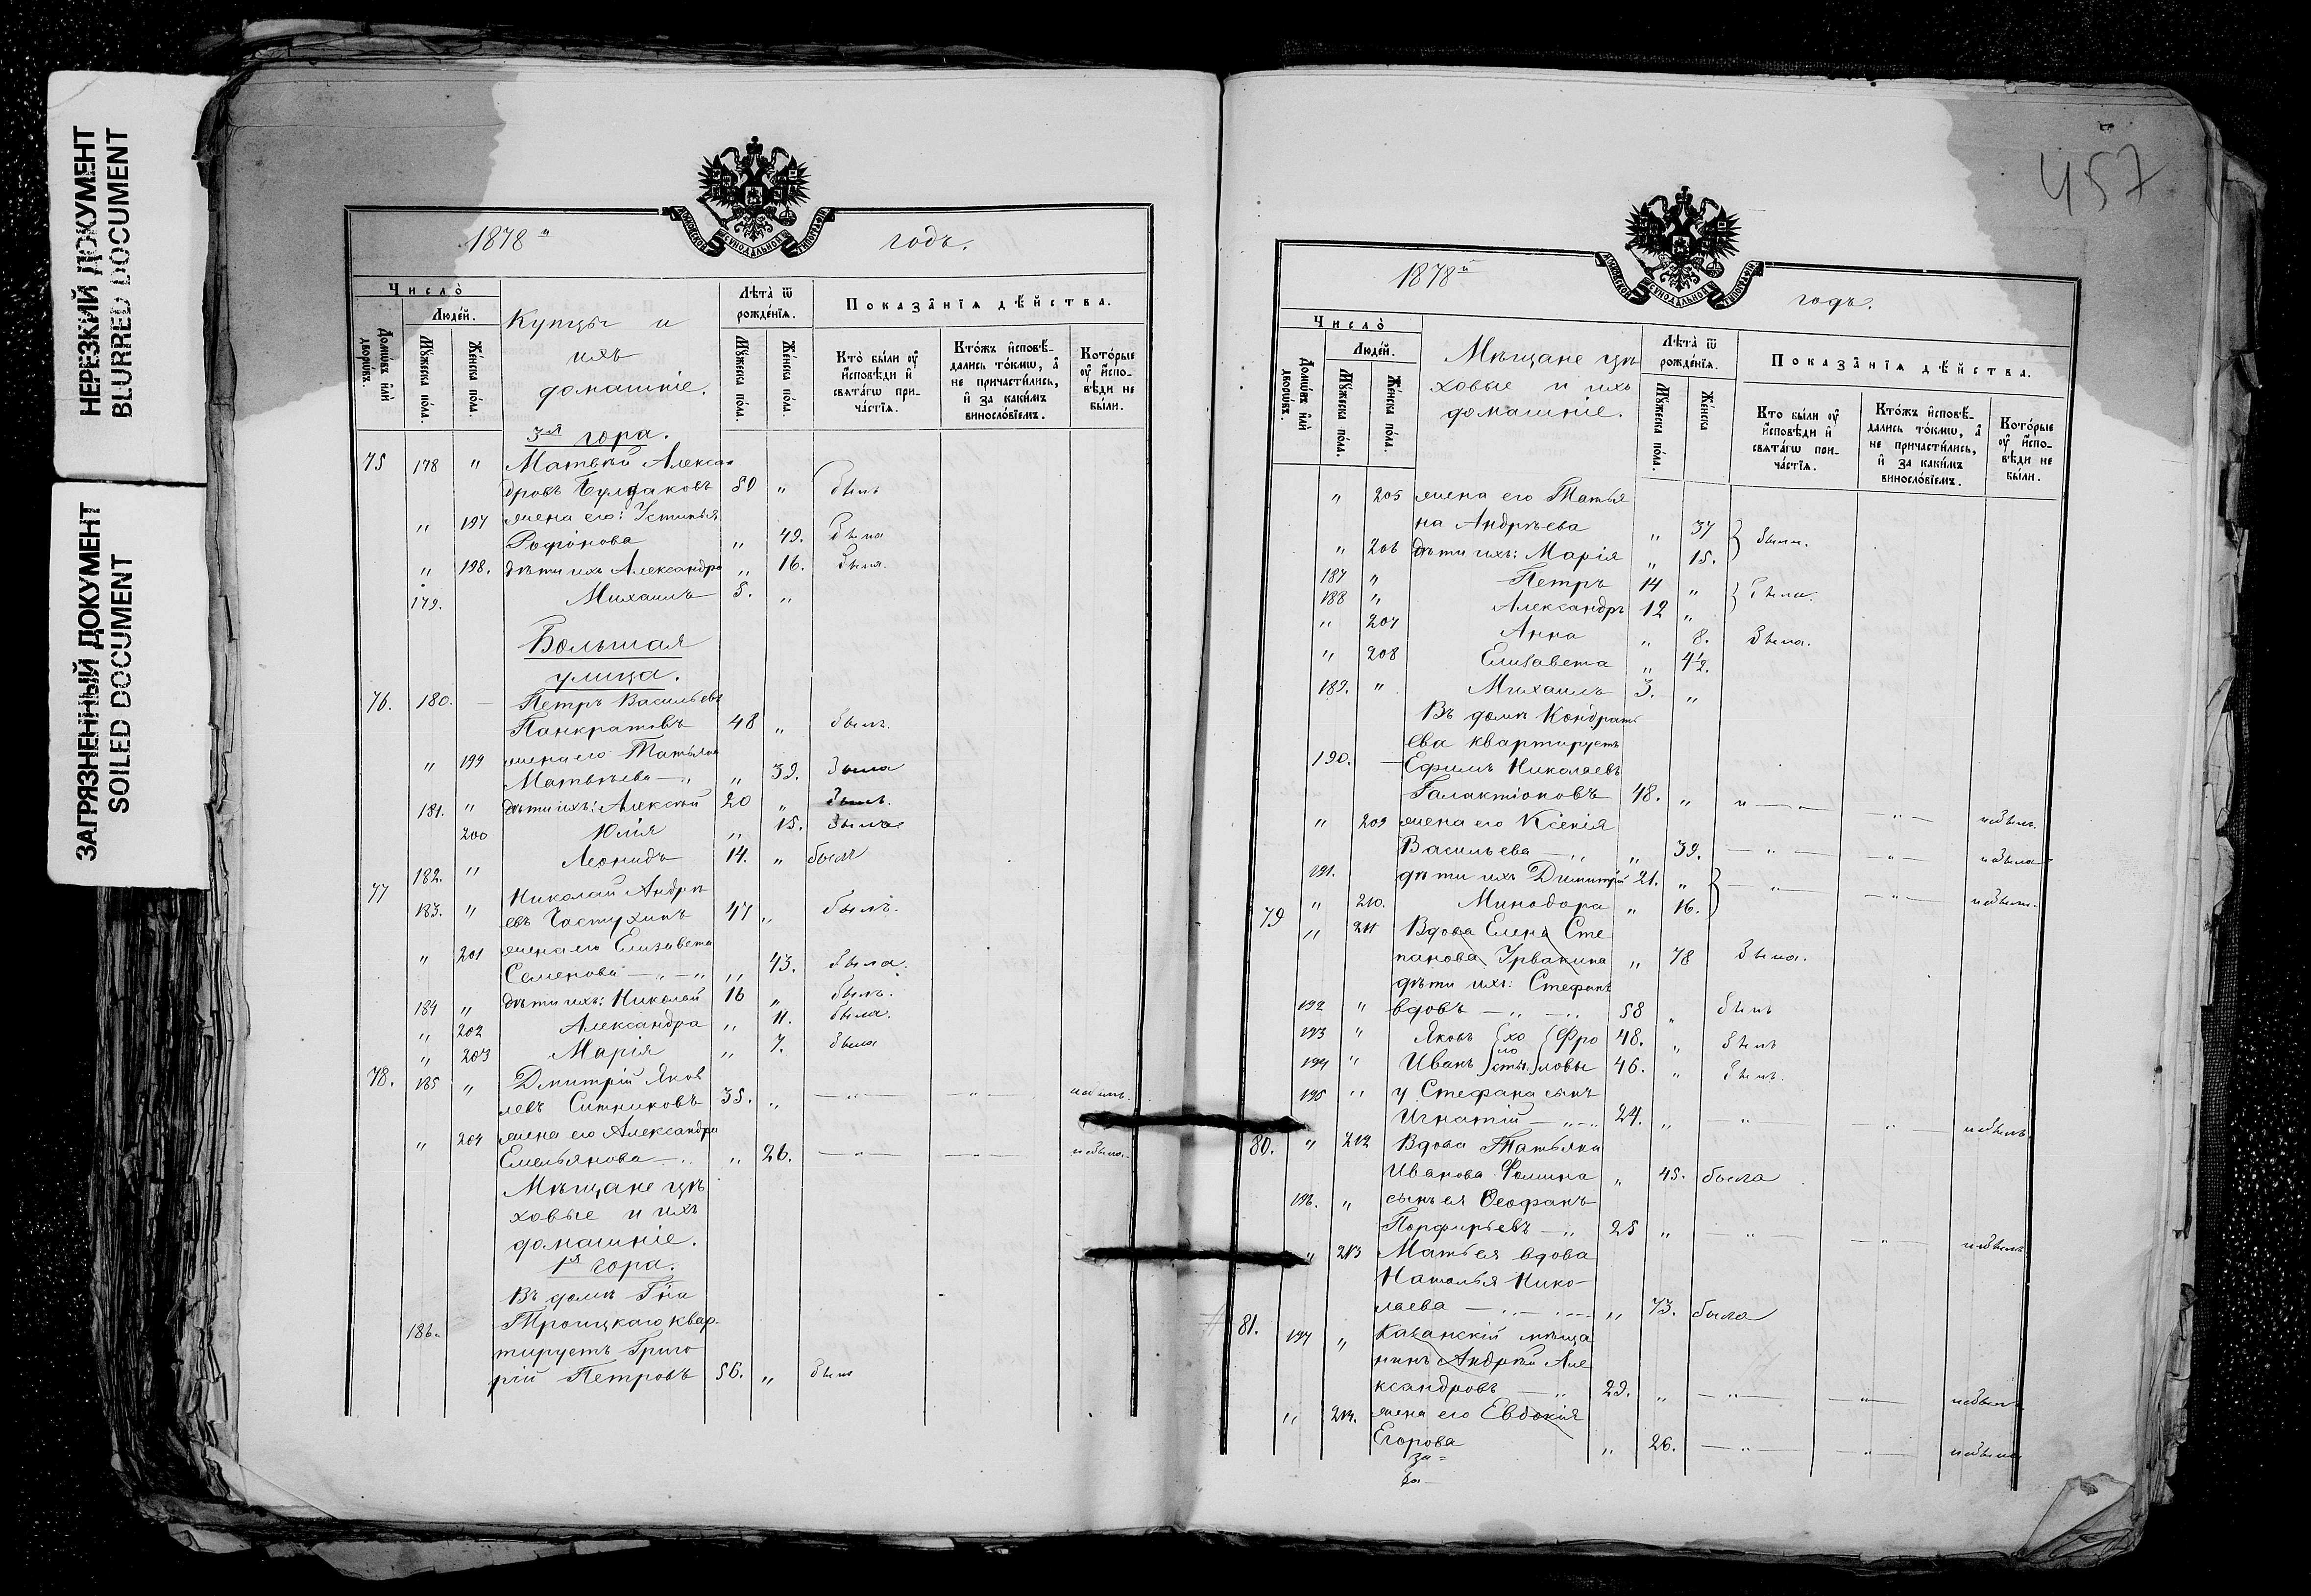 НЕРЕЗКИЙ ДОКУМЕНТ
BLURRED DOCUMENT
ЗАГРЯЗНЕННЫЙ ДОКУМЕНТ
SOILED DOCUMENT
МОСКОВСКОЙ СѴНОДАЛЬНОЙ ТИПОГРАФІИ
1878й годъ.
Число̀
Домѡ́въ и҆лѝ дворѡ́въ.
Люде́й.
Мꙋ́жеска по́ла.
Же́нска по́ла.
Купцы и
ихъ
домашніе.
Лѣ́та ѿ рожде́нїѧ.
Мꙋ́жеска по́ла.
Же́нска по́ла.
Показа̑нїѧ дѣ́йства.
Кто̀ бы́ли ᲂу҆ и҆сповѣ́ди и҆ свѧта́гѡ прича́стїѧ.
Кто́жъ и҆сповѣ́дались то́кмѡ, а҆ не причасти́лись, и҆ за каки́мъ виносло́вїемъ.
Кото́рые ᲂу҆ и҆сповѣ́ди не бы́ли.
3ья гора.
75 178 " Матвѣй Алексан
дровъ Булдаковъ 50 " былъ
" 197 жена его: Устинья
Рофiонова " 49. была
" 198. дѣти ихъ Александра " 16. была.
179. Михаилъ 5. "
Большая
улица.
76. 180. — Петръ Васильевъ
Панкратовъ 48 " былъ.
" 199 жена его Татьяна
Матвѣева — " " 39. была
181. " дѣти ихъ: Алексѣй 20 " былъ.
200 Юлія " 15. была
182. " Леонидъ 14. " былъ
77 183. " Николай Андрѣ
евъ Частухинъ 47 " былъ.
" 201 жена его Елизавета
Семенова — " — " " 43. была.
184 " дѣти ихъ: Николай 16 " былъ.
" 202 Александра " 11. была.
" 203 Марія " 7. была
78. 185 " Дмитрій Яков
левъ Ситниковъ 35. " — " — — " — небылъ.
" 204 жена его Александра
Емельянова — " " 26. — " — — " — небыла.
Мѣщане цѣ
ховые и ихъ
домашніе.
1я гора.
Въ домѣ Гна
186. Троицкаго квар-
тируетъ Григо
рій Петровъ 56. " былъ
457
МОСКОВСКОЙ СѴНОДАЛЬНОЙ ТИПОГРАФІИ
1878й годъ.
Число̀
Домѡ́въ и҆лѝ дворѡ́въ.
Люде́й.
Мꙋ́жеска по́ла.
Же́нска по́ла.
Мѣщане цѣ
ховые и ихъ
домашніе.
Лѣ́та ѿ рожде́нїѧ.
Мꙋ́жеска по́ла.
Же́нска
Показа̑нїѧ дѣ́йства.
Кто бы́ли ᲂу҆ и҆сповѣ́ди и҆ свѧта́гѡ прича́стїѧ.
Кто́жъ и҆сповѣ́дались то́кмѡ, а҆ не причасти́лись, и҆ за каки́мъ виносло́вїемъ.
Кото́рые ᲂу҆ и҆сповѣ́ди не бы́ли.
" 205 жена его Татья
на Андрѣева " 37
" 206 дѣти ихъ: Марія " 15. были.
187 " Петръ 14 "
188 " Александръ 12 " были.
" 207 Анна " 8. была.
" 208 Елизавета " 4½.
189. " Михаилъ 3. "
Въ домѣ Кондрать
ева квартируетъ
190. — Ефимъ Николаевъ
Галактіоновъ 48. " " — " — " — небылъ.
" 209 жена его Ксенія
Васильева — " " 39. — " — — " — небыла
191. дѣти ихъ Димитрій 21. " — " — — " — небыли.
" 210. Минодора " 16.
79 " 211 Вдова Елена Сте
панова Урванина " 78 была.
дѣти ихъ: Стефанъ
192 " вдовъ — " — " 58 " былъ
193 " Яковъ хо Фро 48. " былъ
194 " Иванъ ло сты. ловы 46. " былъ.
195 " у Стефана сынъ
Игнатій — " — " 24. " — " — " — небылъ
80. " 212 Вдова Татьяна
Иванова Фомина " 45. была
196. " сынъ ея Ѳеофанъ
Порфирьевъ — " 25 " — " — — " — небылъ
" 213 Мать ея вдова
Наталья Нико-
лаева — " — " — " 73. была
81. 197 " Казанскій мѣща
нинъ Андрей Але
ксандровъ — " 29. " — " — — " — небылъ
" 214. жена его Евдокія
Егорова " 26. — " — — " — небыла
за=